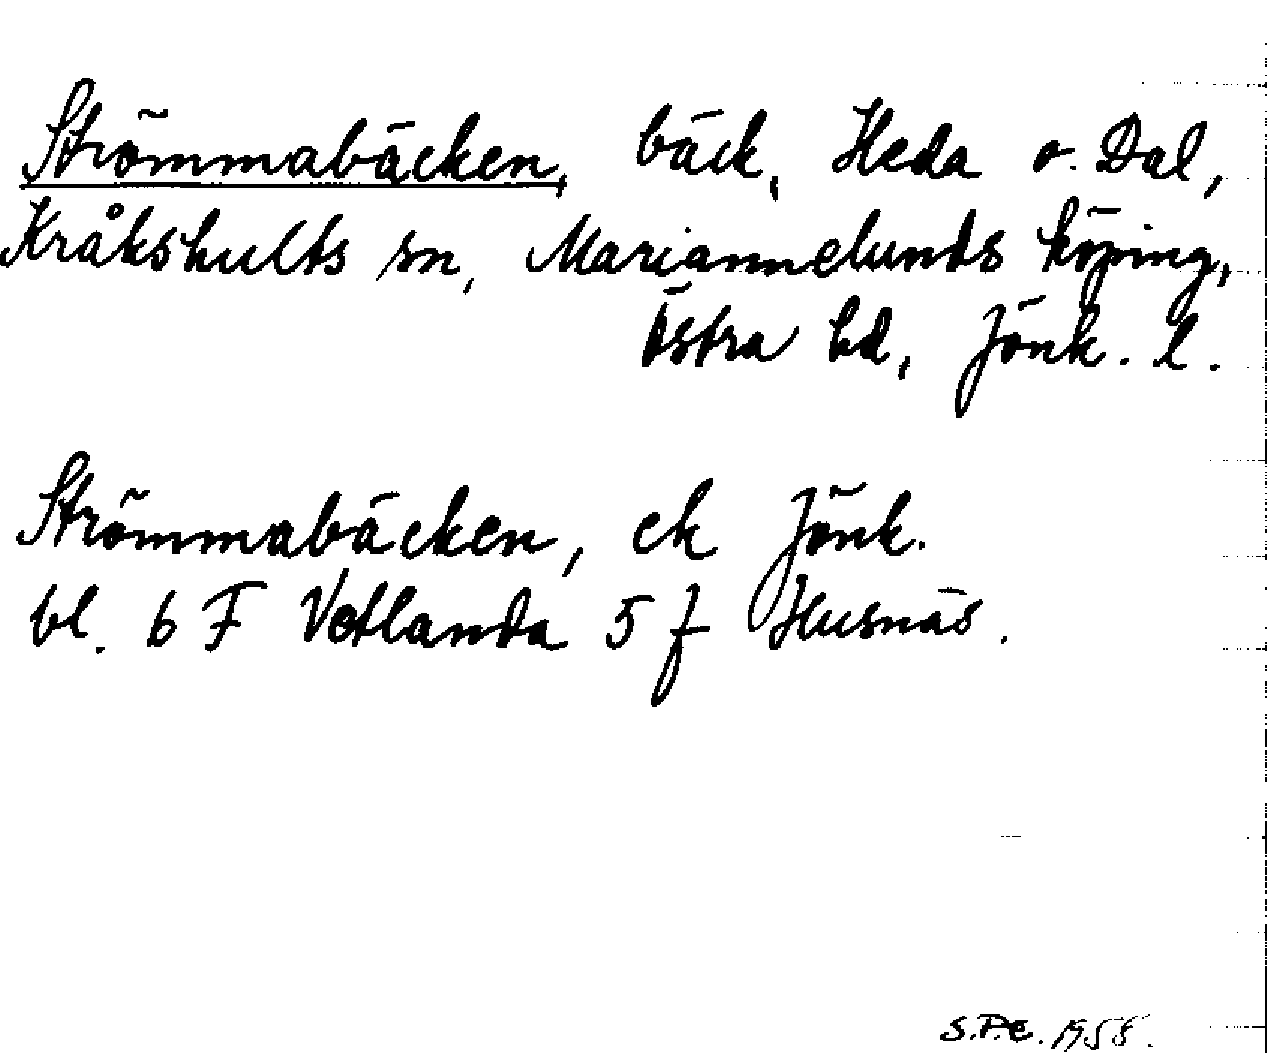 Strömmabäcken, bäck, Heda o. Dal,
Kråkshults sn, Mariannelunds köping,
Östra hd, Jönk. l.
Strömmabäcken, ek Jönk.
bl. 6 F Vetlanda 5 f Husnäs.
S.P.C. 1958.